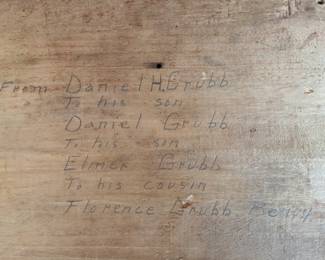 From Daniel H. Grubb
To his son
Daniel Grubb
To his son
Elmer Grubb
To his cousin
Florence Grubb